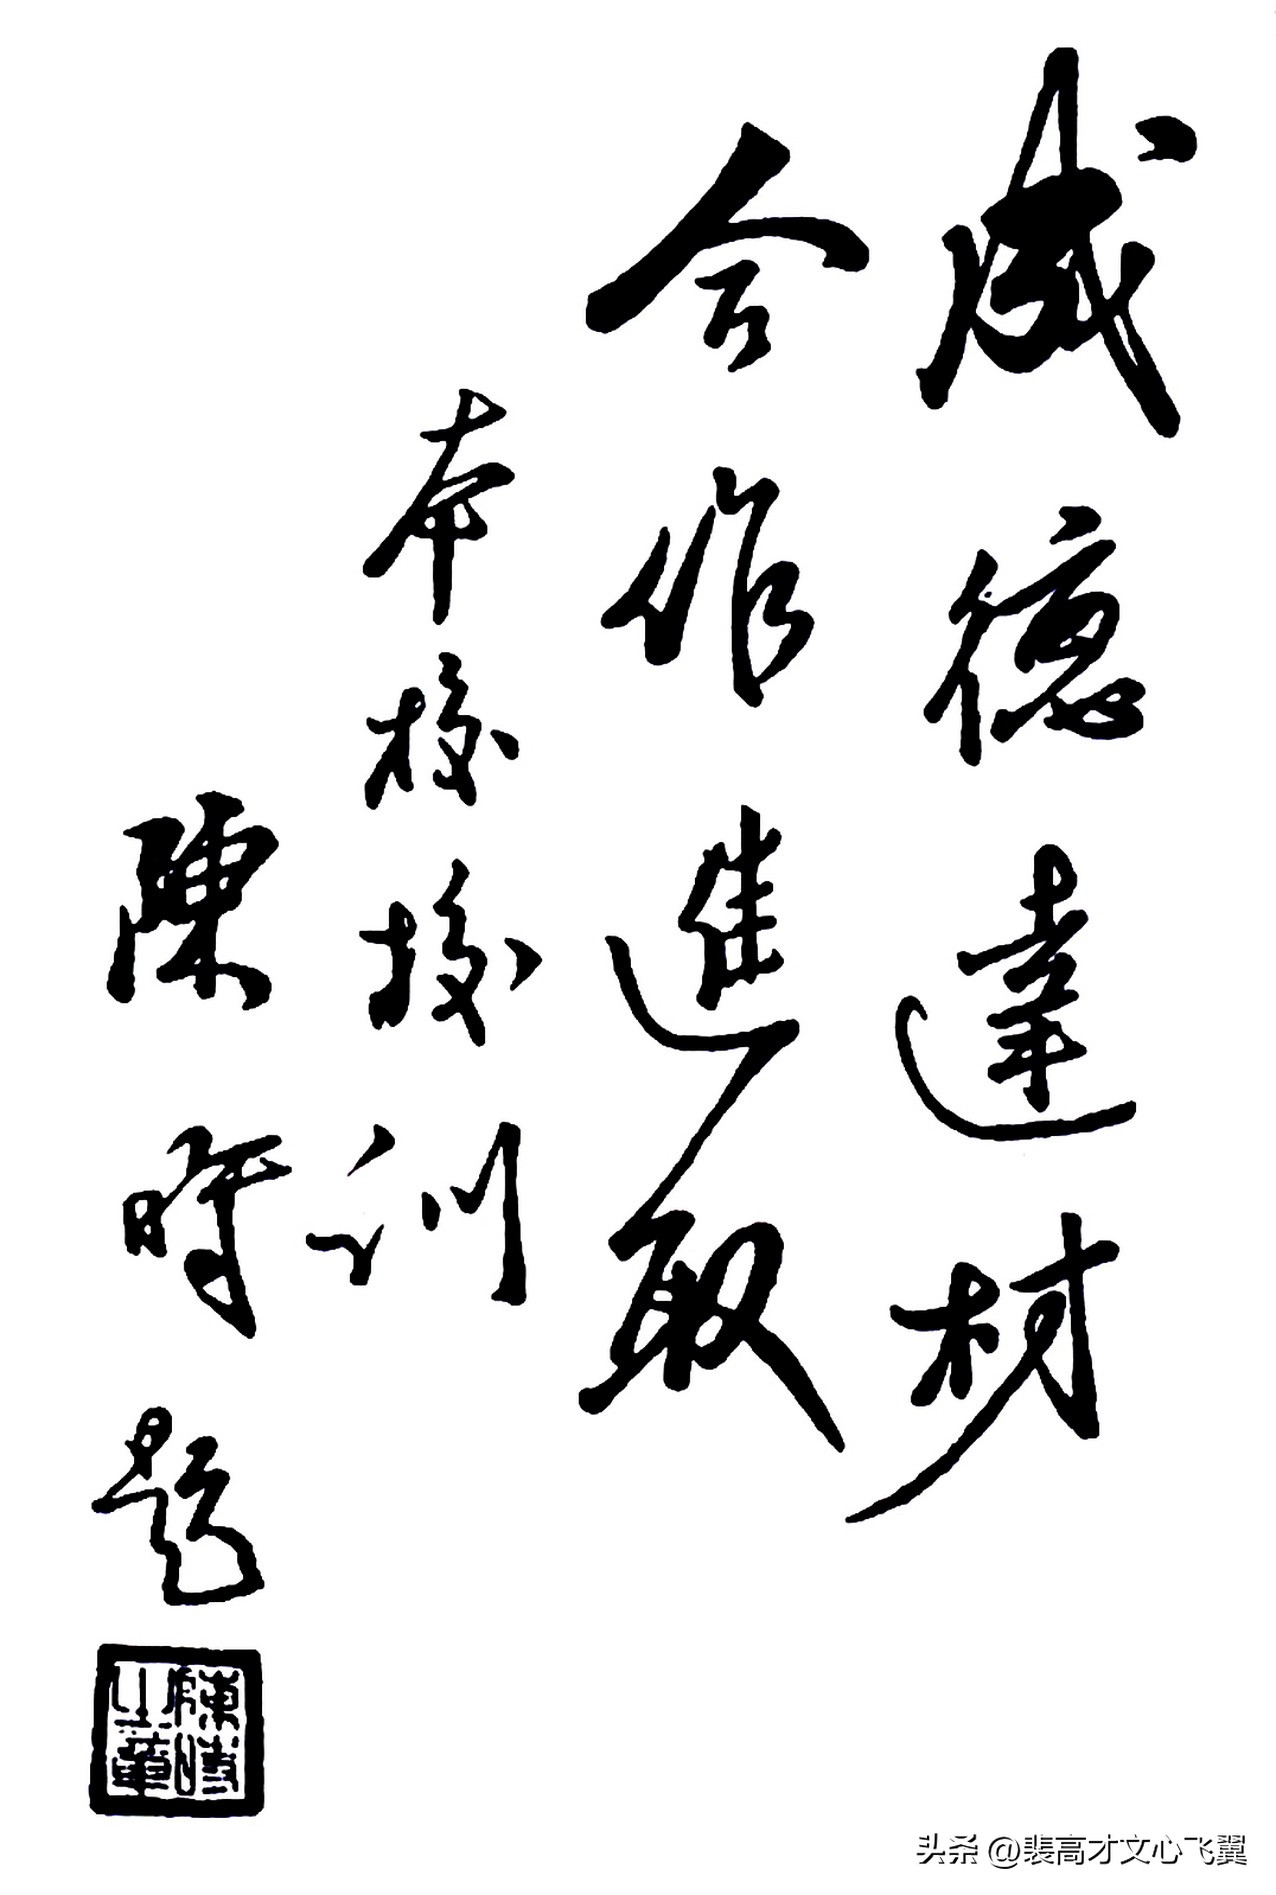 成德達材
合作進取
本校校訓
陳時題
陳時之章
头条 @裴高才文心飞翼